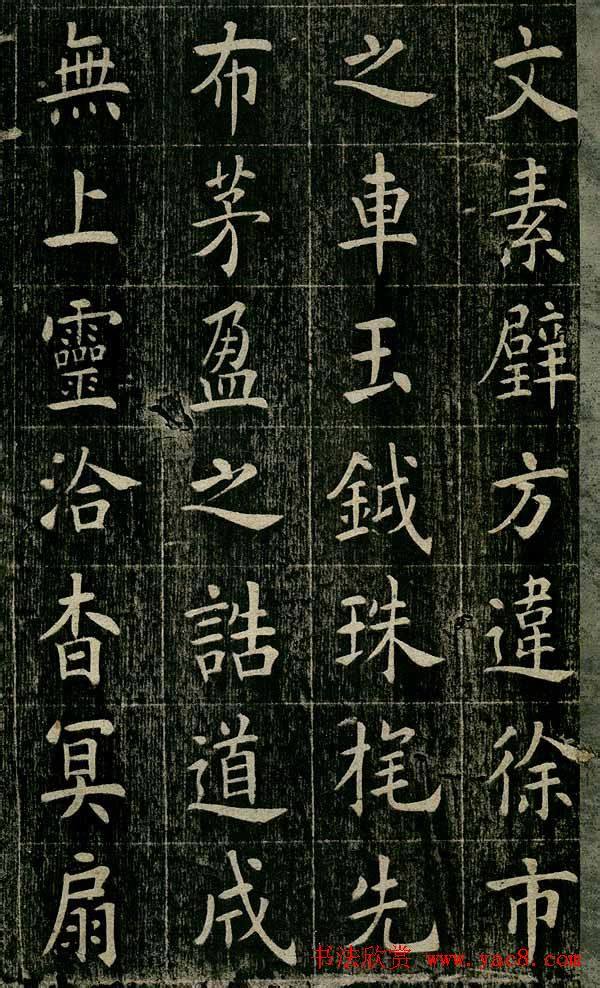 文素璧方違徐市
之車玉鉞珠旄先
布茅盈之誥道成
無上靈洽杳冥扇
书法欣赏 www.yac8.com